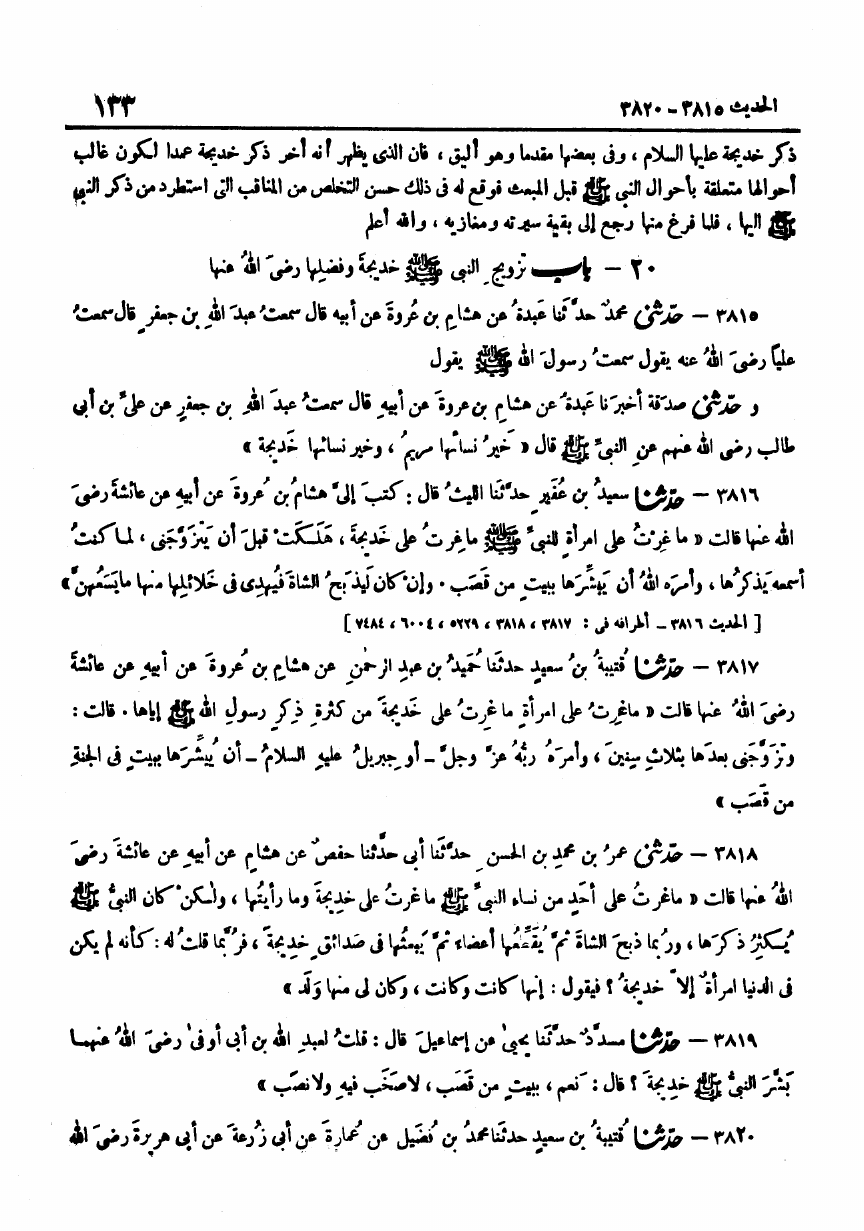 الحديث ٣٨١٥ - ٣٨٢٠ ١٣٣
ذكر خديجة عليها السلام ، وفى بعضها مقدما وهو أليق ، فان الذى يظهر أنه أخر ذكر خديجة عمدا لكون غالب
أحوالها متعلقة بأحوال النبي ﷺ قبل المبعث فوقع له فى ذلك حسن التخلص من المناقب التى استطرد من ذكر النبي
ﷺ اليها ، فلما فرغ منها رجع إلى بقية سيرته ومغازيه ، والله أعلم
٢٠ - باب تزويجِ النبى ﷺ خديجةَ وفضلِها رضىَ اللهُ عنها
٣٨١٥ - حدّثنى محمدٌ حدَّثَنا عَبدةُ عن هشامِ بن عُروةَ عن أبيه قال سمعتُ عبدَ اللهِ بن جعفرٍ قال سمعتُ
علياً رضىَ اللهُ عنه يقول سمعتُ رسولَ الله ﷺ يقول
و حدّثنى صدقة أخبرَنا عَبدةُ عن هشامِ بن عروةَ عن أبيهِ قال سمعتُ عبدَ اللهِ بن جعفرٍ عن علىِّ بن أبى
طالب رضى الله عنهم عنِ النبىِّ ﷺ قال « خَيرُ نسائها مريمُ ، وخير نسائها خَديجة »
٣٨١٦ - حدّثنا سعيدُ بن عُفَيرٍ حدَّثَنا الليثُ قال : كتبَ إلىَّ هشامُ بن عُروةَ عن أبيهِ عن عائشةَ رضىَ
الله عنها قالت « ما غِرْتُ على امرأةٍ للنبىِّ ﷺ ماغِرتُ على خَديجةَ ، هَلَكَتْ قبلَ أن يَتزَوَّجَنى ، لما كنتُ
أسمعه يَذكرُها ، وأمرَه اللهُ أن يُبشِّرَها ببيتٍ من قصَب . وإن كان لَيذبحُ الشاةَ فيُهدِى فى خَلائلِها منها مايَسَعُهنَّ »
[ الحديث ٣٨١٦ - أطرافه فى : ٣٨١٧ ، ٣٨١٨ ، ٥٢٢٩ ، ٦٠٠٤ ، ٧٤٨٤ ]
٣٨١٧ - حدّثنا قُتيبةُ بنُ سعيدٍ حدثَنا حُميدُ بن عبدِ الرحمٰنِ عن هشامِ بن عُروةَ عن أبيهِ عن عائشةَ
رضىَ اللهُ عنها قالت « ماغِرتُ على امرأةٍ ماغِرتُ على خَديجةَ من كثرةِ ذِكرِ رسولِ الله ﷺ إياها . قالت :
وتزَوَّجَنى بعدَها بثلاثِ سِنينَ ، وأمرَهُ ربُّهُ عزَّ وجلَّ - أو جِبريلُ عليهِ السلامُ - أن يُبشِّرَها ببيتٍ فى الجنةِ
من قَصَب »
٣٨١٨ - حدّثنى عمرُ بن محمدِ بن الحسنِ حدَّثَنا أبى حدَّثَنا حفصٌ عن هشامٍ عن أبيهِ عن عائشةَ رضىَ
اللهُ عنها قالت « ماغرتُ على أحَدٍ من نساءِ النبىِّ ﷺ ماغرتُ على خَديجةَ وما رأيتُها ، ولٰكنْ كان النبىُّ ﷺ
يُكثِرُ ذكرَها ، وربما ذبحَ الشاةَ ثمَّ يُقَطِّعُها أعضاءً ثمَّ يَبعثُها فى صَدائقِ خديجةَ ، فرُبَّما قلتُ له : كأنه لم يكن
فى الدنيا امرأةٌ إلاَّ خديجةُ ؟ فيقول : إنها كانت وكانت ، وكان لى منها وَلَد »
٣٨١٩ - حدّثنا مسدَّدٌ حدثَنا يحيىٰ عن إسماعيلَ قال : قلتُ لعبدِ الله بن أبى أوفىٰ رضىَ اللهُ عنهما
بَشَّرَ النبىُّ ﷺ خديجةَ ؟ قال : نَعم ، ببيتٍ من قَصَب ، لاصخَب فيهِ ولا نصَب »
٣٨٢٠ - حدّثنا قُتيبةُ بن سعيدٍ حدثَنا محمدُ بن فُضَيل عن عُمارةَ عن أبى زُرعةَ عن أبى هريرةَ رضىَ الله